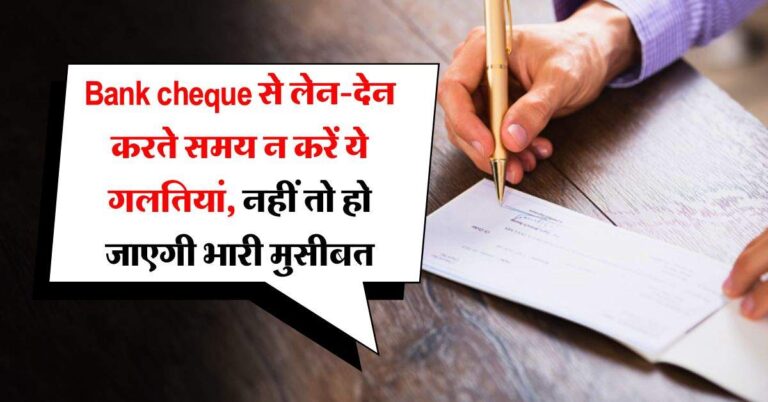 Bank cheque से लेन-देन
करते समय न करें ये
गलतियां, नहीं तो हो
जाएगी भारी मुसीबत